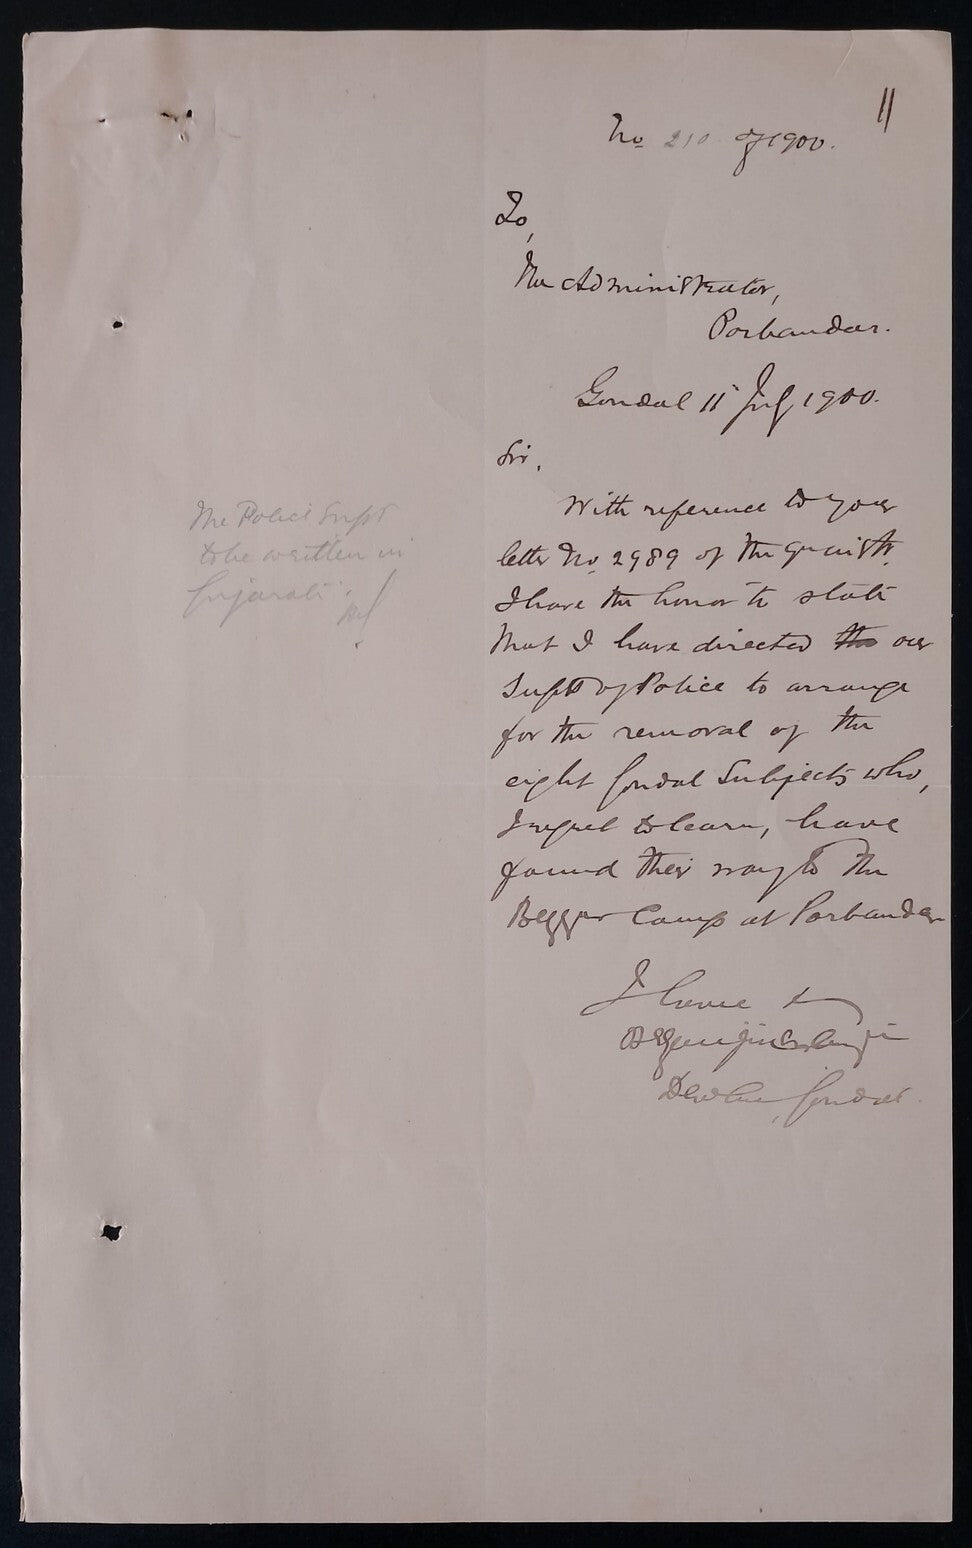 11
No 210 of 1900.
To,
The Administrator,
Porbandar.
Gondal 11th July 1900.
Sir,
With reference to your
letter No. 2989 of the
I have the honor to state
that I have directed the our
Supdt of Police to arrange
for the removal of the
eight Gondal Subjects who,
I regret to learn, have
found their way to the
Begger Camp at Porbandar
I have &
Dewan, Gondal.
The Police Supdt
to be written in
Gujarati.